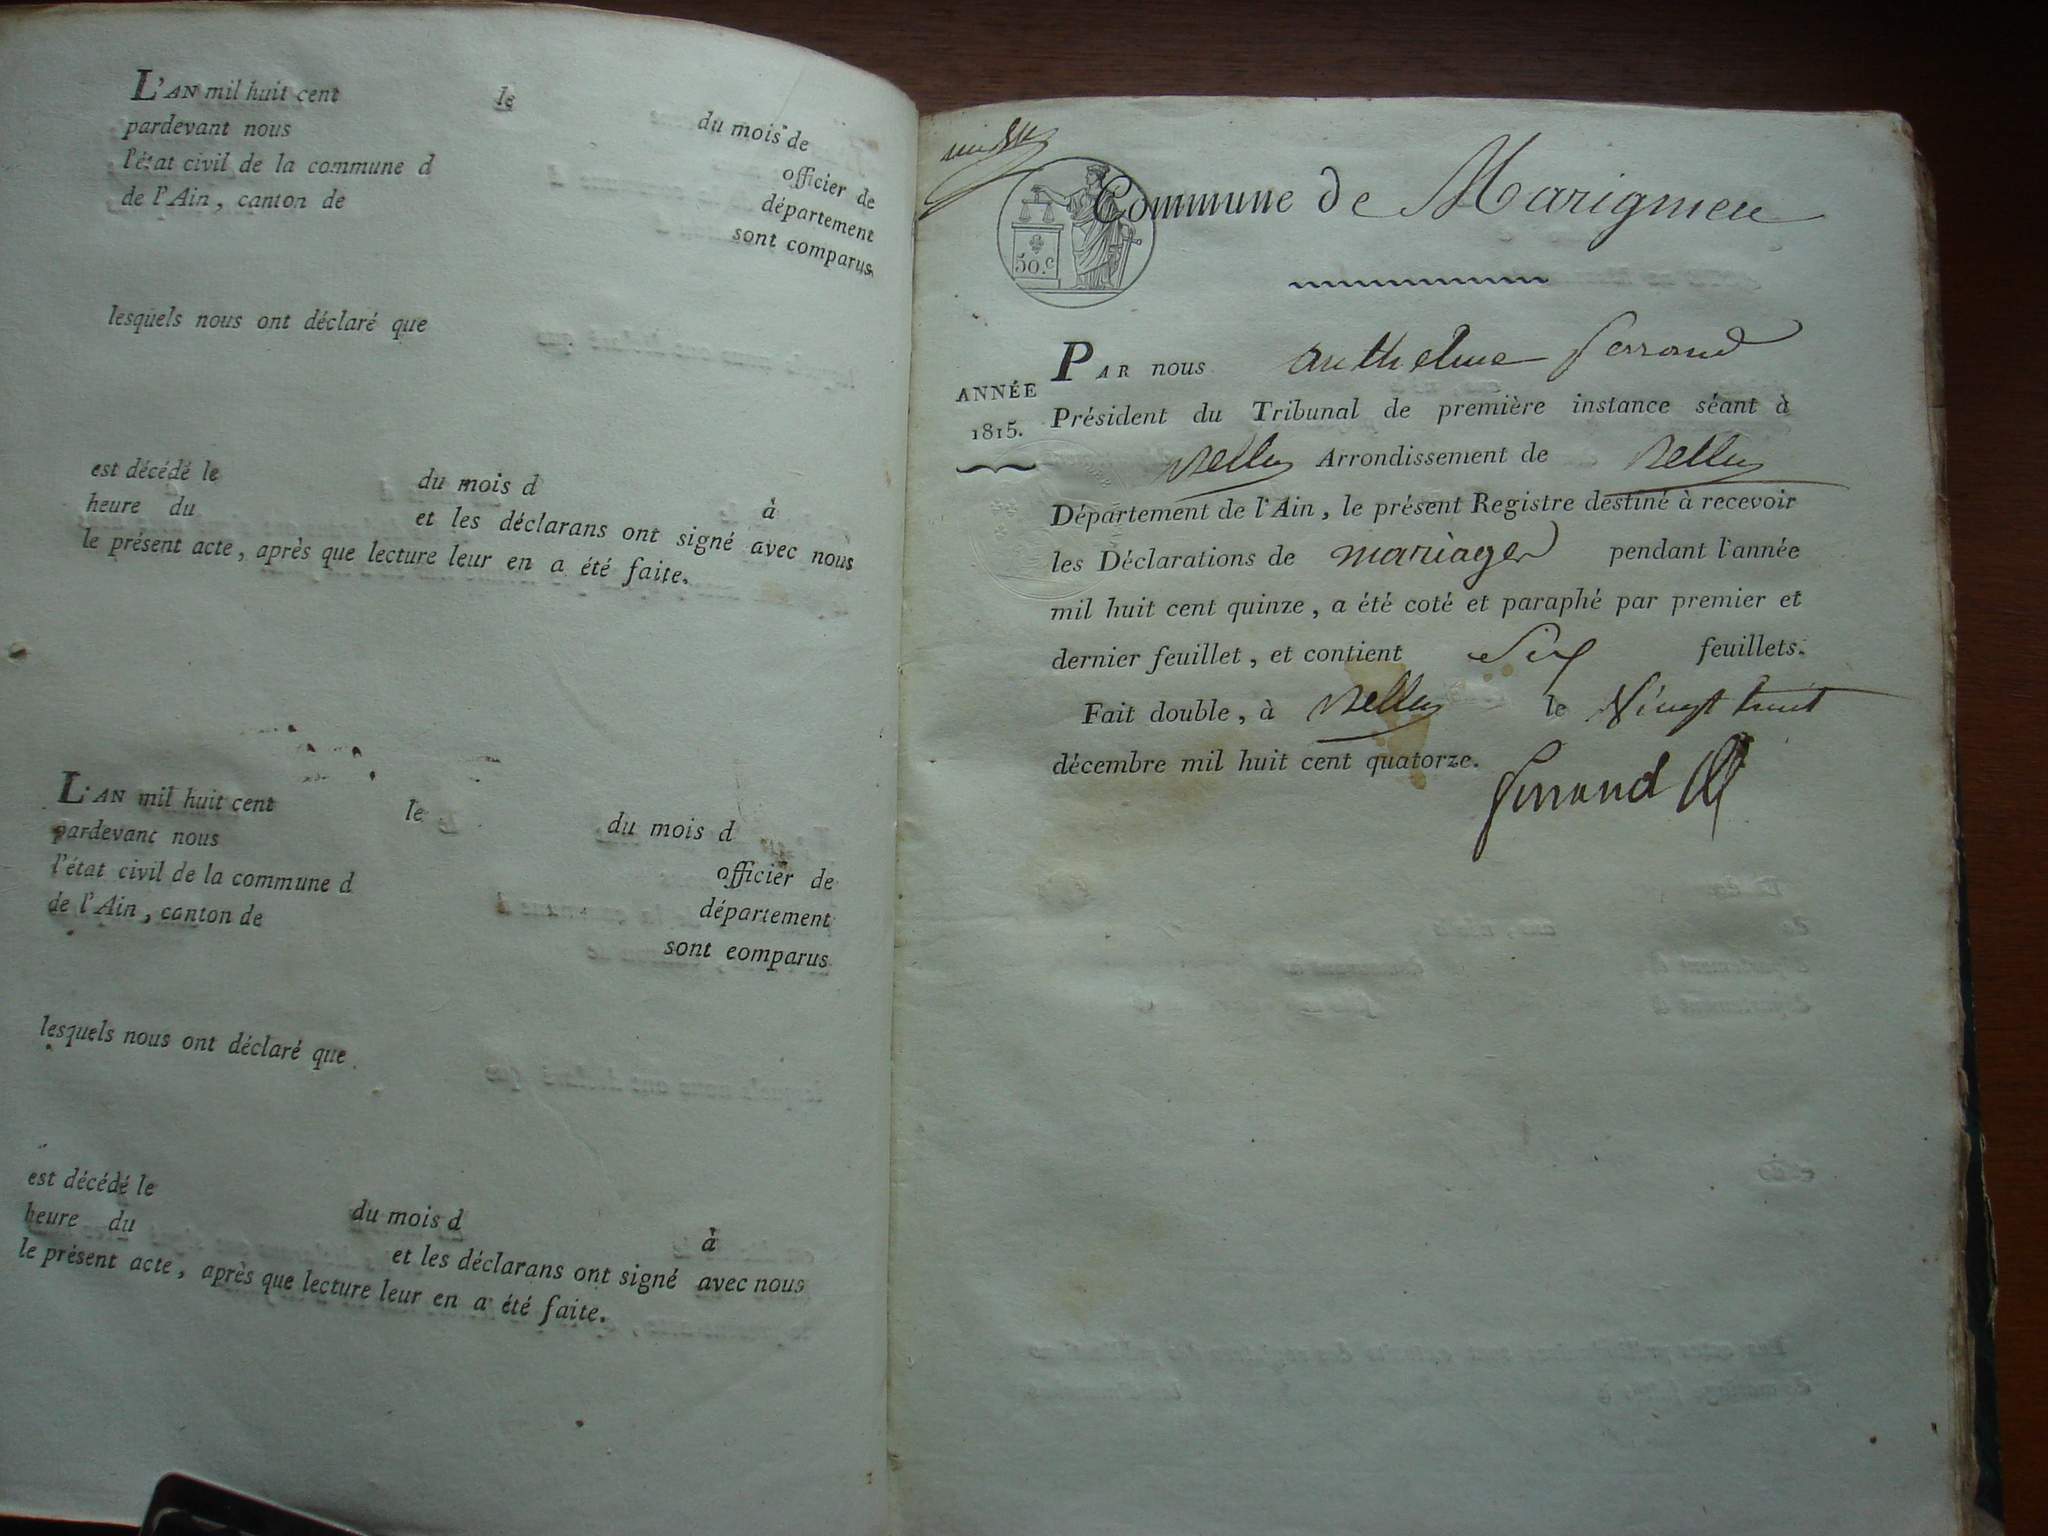 L'AN mil huit cent le du mois de
pardevant nous officier de
l'état civil de la commune d département
de l'Ain, canton de sont comparus
lesquels nous ont déclaré que
est décédé le du mois d à
heure du et les déclarans ont signé avec nous
le présent acte, après que lecture leur en a été faite.
L'AN mil huit cent le du mois d
pardevant nous officier de
l'état civil de la commune d département
de l'Ain, canton de sont eomparus
lesquels nous ont déclaré que
est décédé le du mois d à
heure du et les déclarans ont signé avec nous
le présent acte, après que lecture leur en a été faite.
Commune de Marignieu
50.c
ANNÉE
1815.
PAR nous Anthelme Ferrand
Président du Tribunal de première instance séant à
Belley Arrondissement de Belley
Département de l'Ain, le présent Registre destiné à recevoir
les Déclarations de mariages pendant l'année
mil huit cent quinze, a été coté et paraphé par premier et
dernier feuillet, et contient Six feuillets.
Fait double, à Belley le Vingt huit
décembre mil huit cent quatorze.
Ferrand